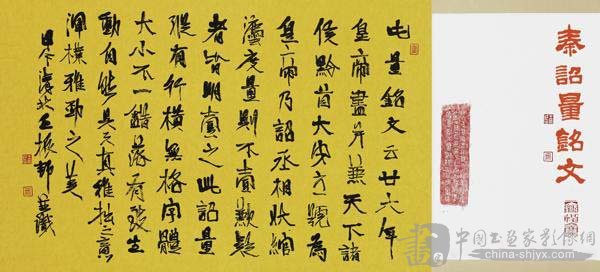 秦詔量銘文
此量銘文云廿六年
皇帝盡并兼天下諸
侯黔首大安立號為
皇帝乃詔丞相狀綰
灋度量則不壹歉疑
者皆明壹之此詔量
縱有行橫無格字體
大小不一錯落有致生
動自然具天真稚拙之意
渾樸雅勁之美
王振
中国书画家影像網
china-shjyx.com